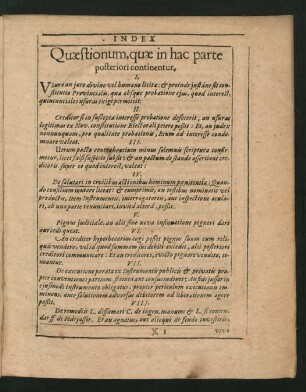 INDEX
Quæstionum, quæ in hac parte
posteriori continentur.
I.
Vsuræ an jure divino vel humano licitæ: & proinde justáne sit con-
stitutio Provincialis, quæ absque probatione ejus, quod interest,
quincunciales usuras exigi permittit.
II.
Creditor si in suscepta interesse probatione defecerit, an usuras
legitimas ex Nov. constitutione Electorali petere possit: Et, an judex
nonnunquam, pro qualitate probationū, Reum ad interesse conde-
mnare valeat.
III.
Utrum pacto contrahentium minus solemnis scriptura confir-
metur, licet falsi suspicio subsit & an pactum de stando assertioni cre-
ditoris super eo quod interest, valeat:
IV.
De salutari in civilibus actionibus hominum
do consilium mutare liceat: & cumprimis, an testibus nominatis vel
productis, item Instrumentis, interrogatoriis, aut inspectione oculari,
ab una parte renunciari, invito adversâ, possit.
V.
Pignus judiciale, an aliàs sine nova insinuatione pigneri dari
aut cedi queat.
VI.
An creditor hypothecarius cogi possit pignus suum cum reli-
quis vendere, vel id quod summam sui debiti excedit, alii posteriori
creditori communicare: Et an creditores, evicto pignore vendito, te-
neantur.
VII.
De executione parata ex Instrumentis publicis & privatis pro-
pter contumaciam partium, fictionibus consuetudinariis: An fidejussor in
ejusmodi instrumento obligatus, propter periculum executionis im-
minens, ante solutionem adversus debitorem ad liberationem agere
possit.
VIII.
De remediis L. diffamari C. de ingen. manum & L. si conten-
dat ff. de fidejussor. Et an agnatus, aut alioqui de feudo investitus,
X 1